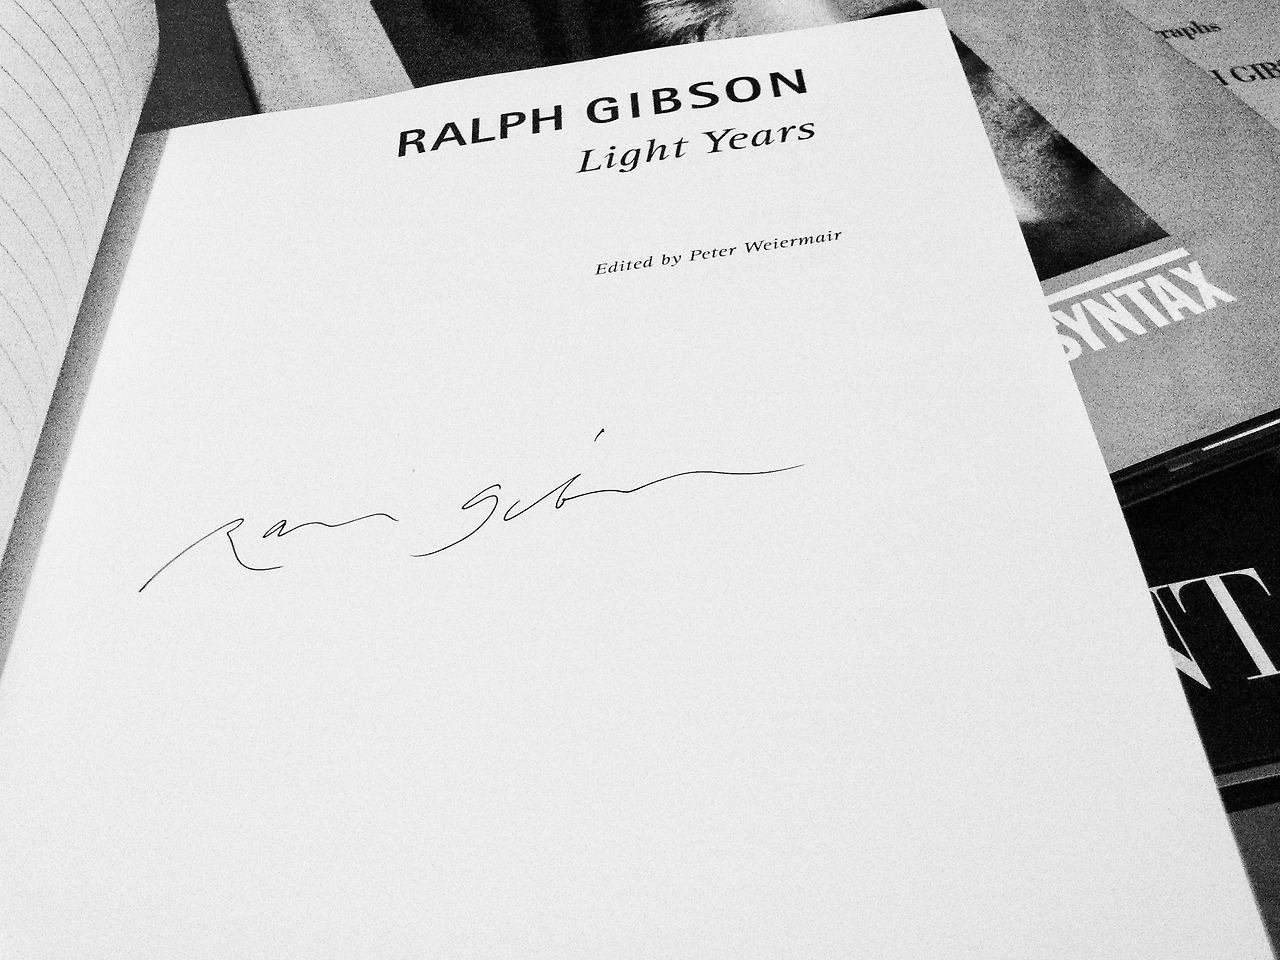 RALPH GIBSON
Light Years
Edited by Peter Weiermair
Ralph Gibson
raphs
H GIBS
SYNTAX
NT